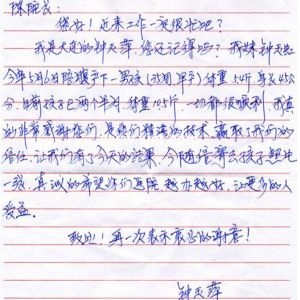 陈院长:
您好!近来工作一定很忙吧?
我是大连的钟玉萍,您还记得吗?我妹钟玉
今年5月6日 产下一男孩(35周早产)体重5斤身长45公
分,目前孩子已两个半月,体重10.5斤,一切都很顺利,我真
的非常感谢你们,是你们精湛的技术,赢取了我们的
信任,让我们有了今天的结果,今随信寄去孩子照片
一张,真诚的希望你们医院越办越好,让更多的人
受益。
致此!再一次表示衷心的谢意!
钟玉萍